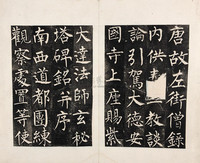 唐故左街僧錄
內供奉教談
論引駕大德安
國寺上座賜紫
大達法師玄秘
塔碑銘并序
南西道都團練
觀察處置等使